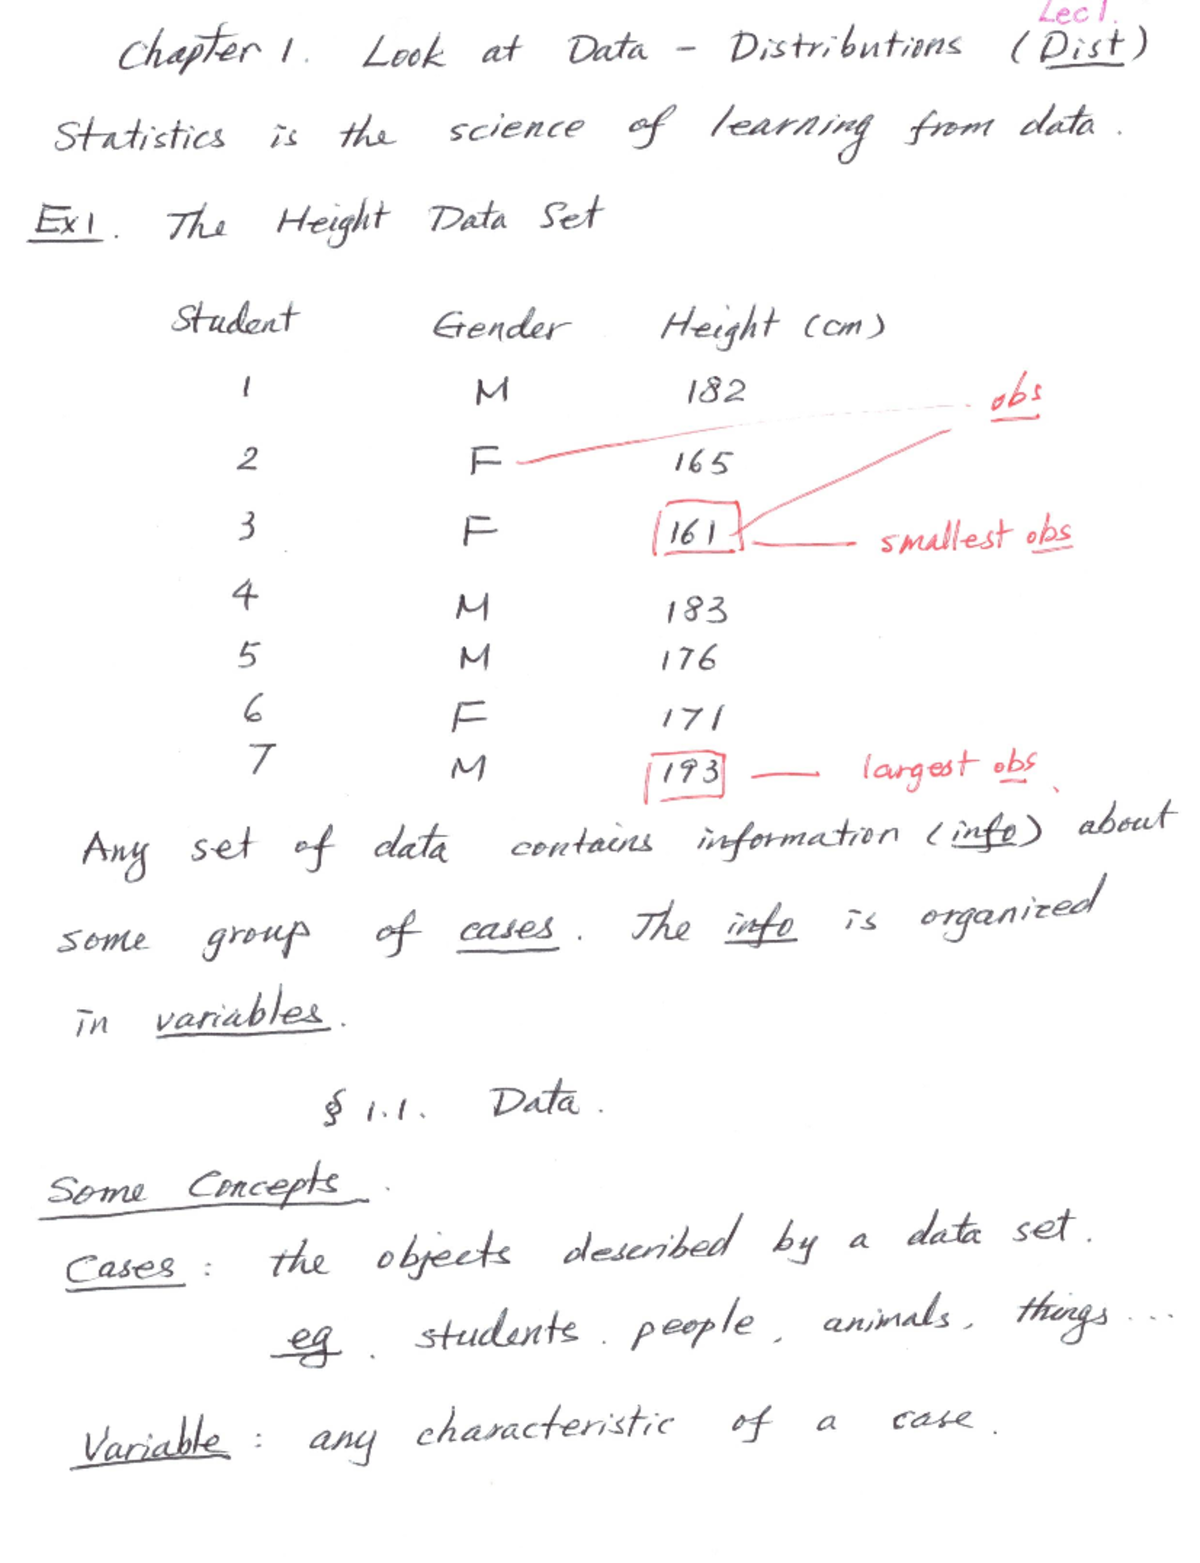 Lec 1.
Chapter 1. Look at Data - Distributions (Dist)
Statistics is the science of learning from data.
Ex1. The Height Data Set
Student Gender Height (cm)
1 M 182 obs
2 F 165
3 F 161 smallest obs
4 M 183
5 M 176
6 F 171
7 M 193 largest obs
Any set of data contains information (info) about
some group of cases. The info is organized
in variables.
§ 1.1. Data.
Some Concepts.
Cases: the objects described by a data set.
eg. students. people, animals, things...
Variable: any characteristic of a case.